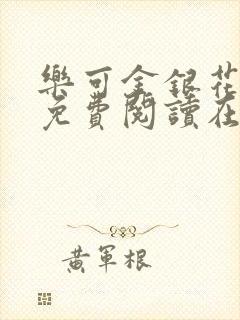 樂可金銀花
免費閱讀在
黃軍根